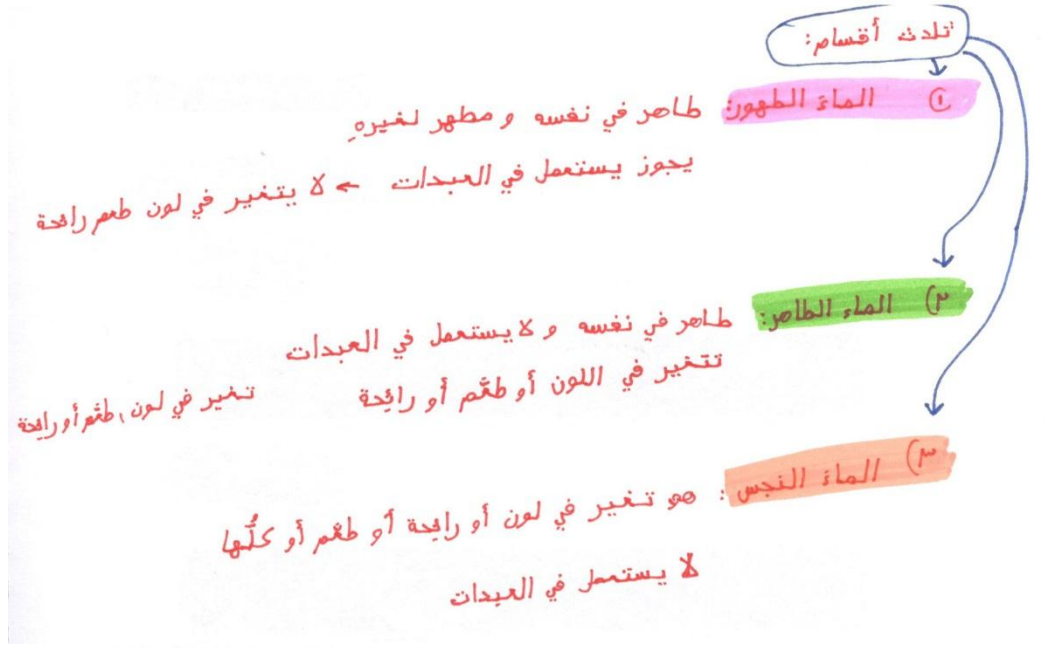 ثلاث أقسام:
① الماء الطهور: طاهر في نفسه و مطهر لغيره
يجوز يستعمل في العبدات ← لا يتغير في لون طعم رائحة
٢) الماء الطاهر: طاهر في نفسه و لا يستعمل في العبدات
تتغير في اللون أو طعم أو رائحة
تغير في لون، طعم أو رائحة
٣) الماء النجس: هو تغير في لون أو رائحة أو طعم أو كلُّها
لا يستعمل في العبدات